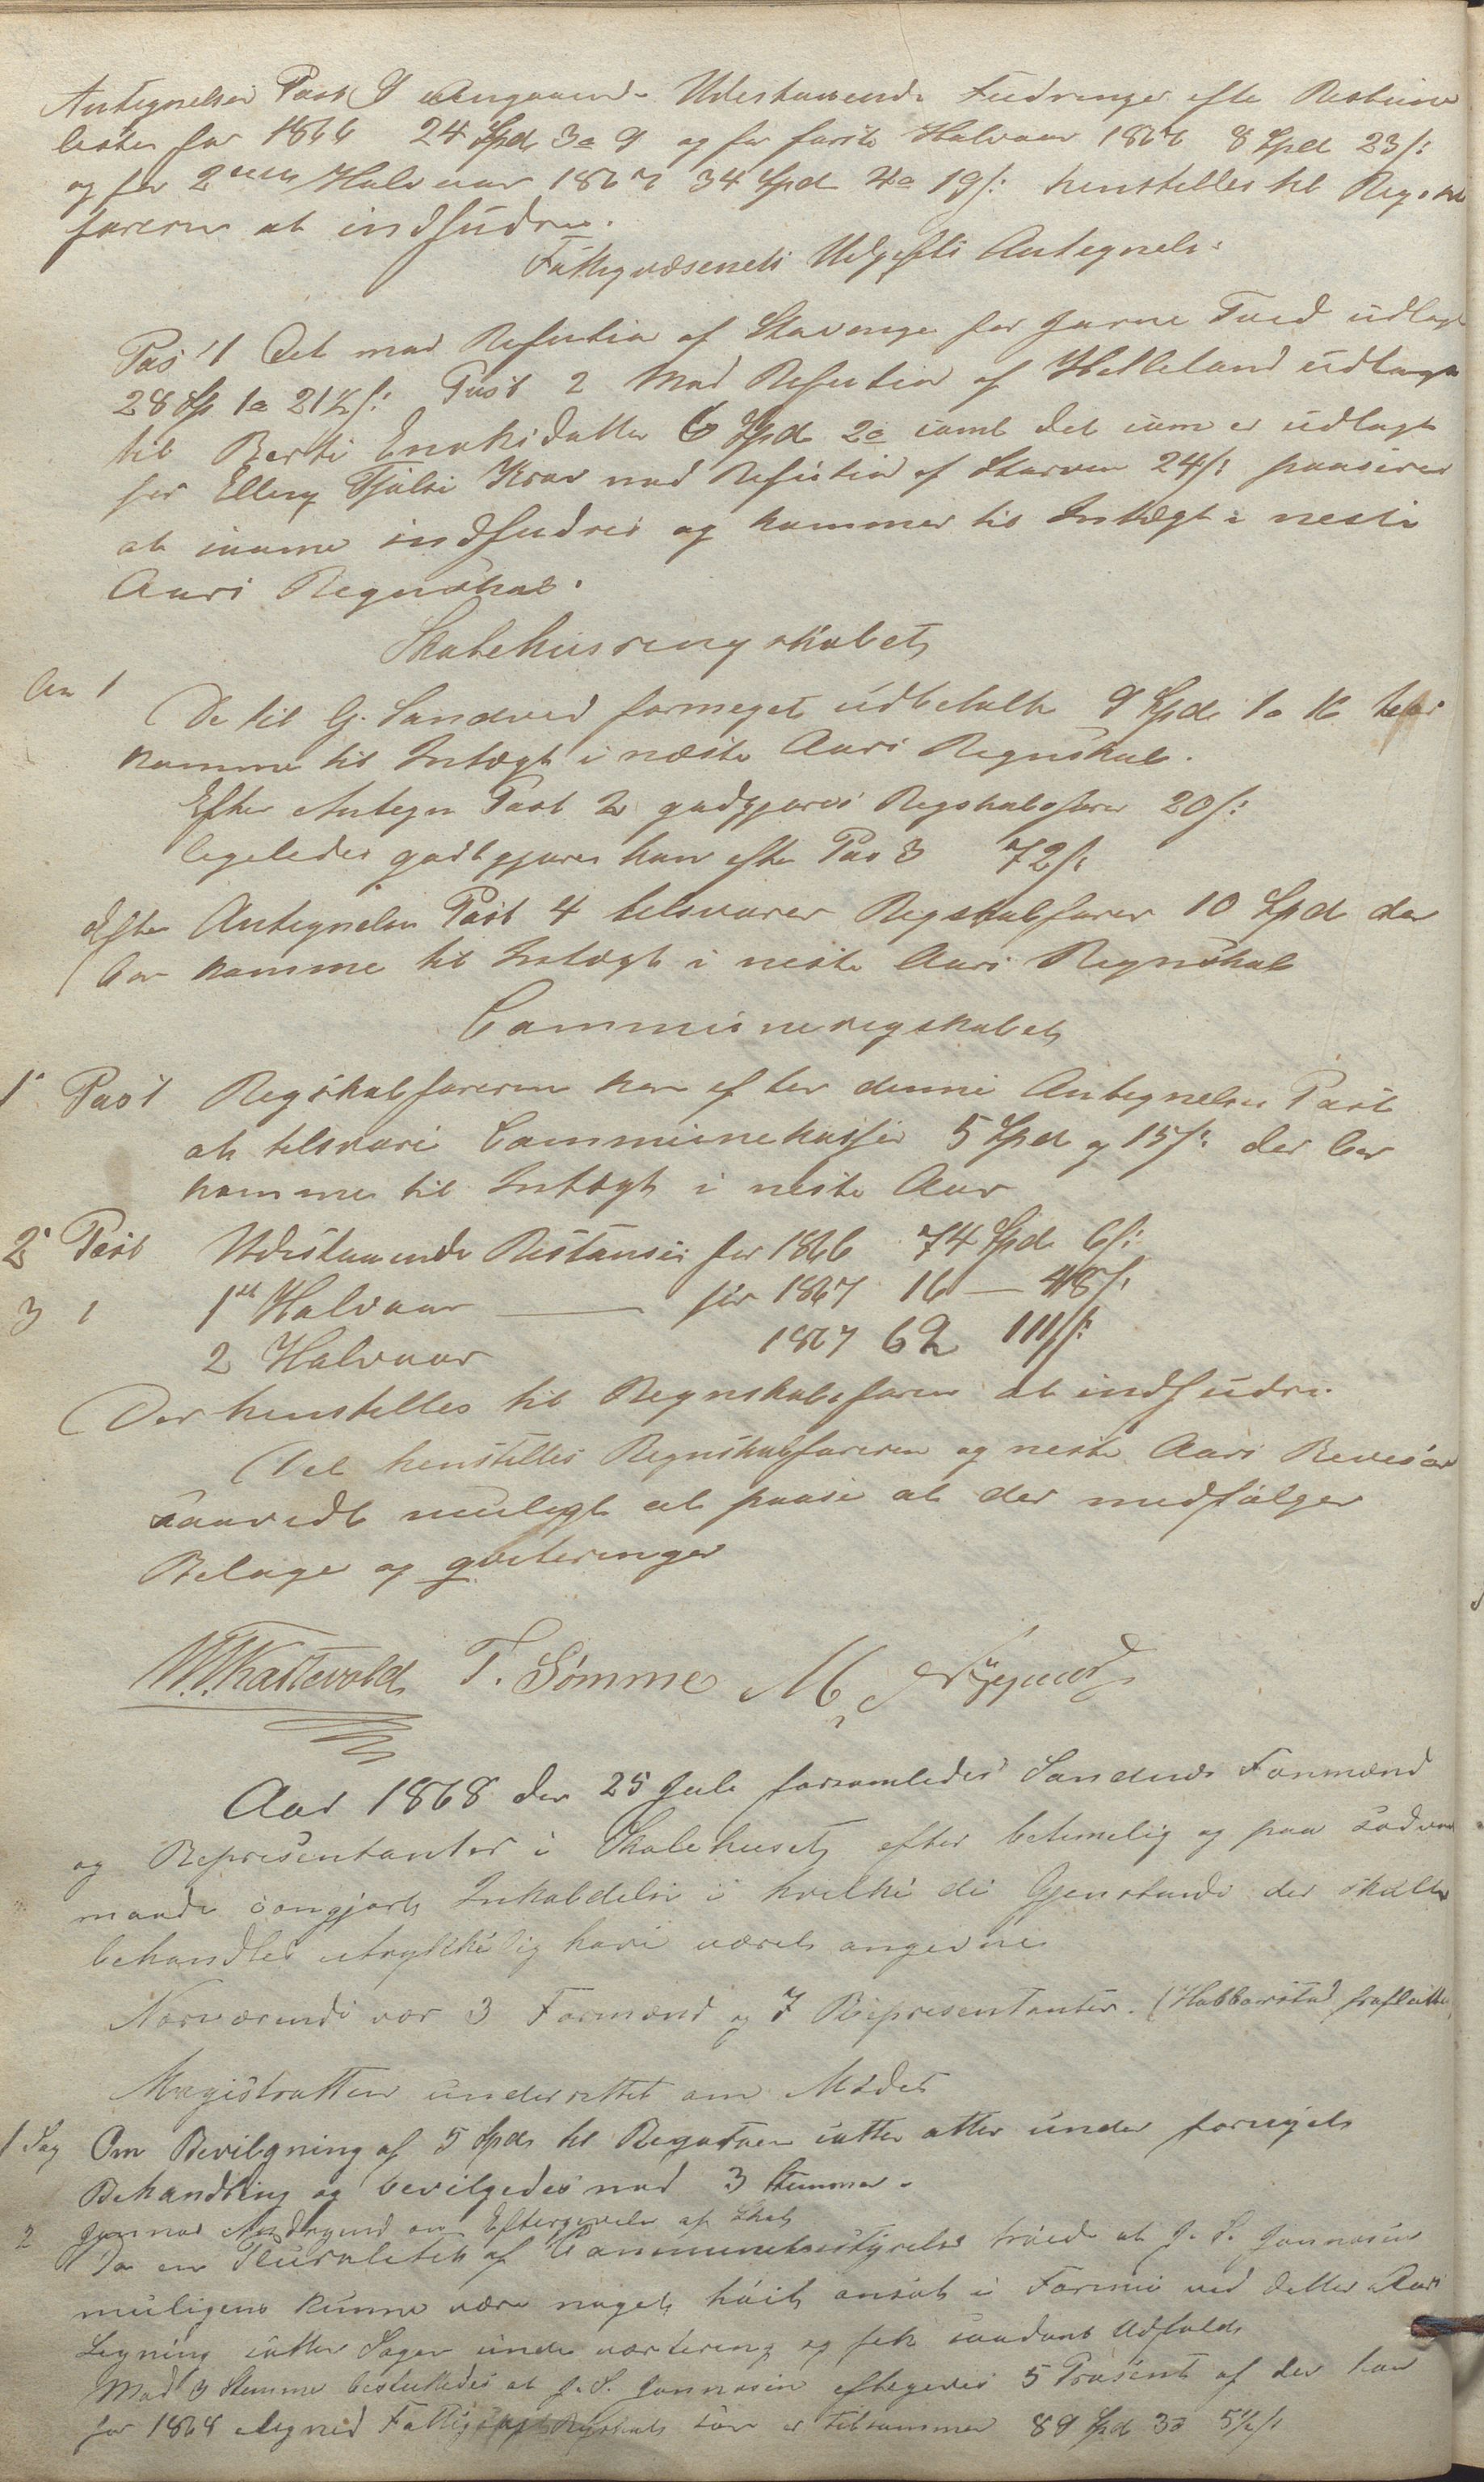 Antegnelsen Post 9 Angaaende Udestaaende Fudringer efter Restance
listen for 1866 24 Spd 3o 9 og for første Halvaar 1867 8 Spd 23 s:
og for 2det Halvaar 1867 34 Spd 4o 19 s: henstilles til Regnska
føreren at indfudre.
Fattigvæsenets Udgifts Antegnelse
Post 1 Det mod Refution af Stavanger for Jarne Tved udlagt
28 Sp 1o 21½ s: Post 2 Mod Refution af Helleland udlagt
til Berthe Enoksdatter 6 Spd 2o samt det som er udlagt
for Elling Krav mod Refution af Skaren 24 s: paasees
at samme indfudres og kommer til Intægt i neste
Aars Regnskab.
Skolehusregnskabet
An 1 De til G. Sandved formeget udbetalte 9 Spd 1o 16 bør
komme til Intægt i næste Aars Regnskab.
Efter Antegn Post 2 godtgjøres Regskabsfører 20 s:
ligeledes godtgjøres han efter Pos 3 72 s:
Efter Antegnelsen Post 4 tilsvarer Regskabfører 10 Spd der
bør komme til Intægt i neste Aars Regnskab
Communeregskabet
1' Post Regskabføreren har efter denne Antegnelses Post
at tilsvare Communekassen 5 Spd og 15 s: der bør
komme til Intægt i neste Aar
2' Post Udestaaende Restanser for 1866 74 Spd 6 s:
3 1 1st Halvaar — for 1867 16 — 48 s:
2 Halvaar 1867 62 111 s:
Der henstilles til Regnskabsfører at indfudre.
Det henstilles Regnskabføreren og neste Aars Revisor
saavidt muligt at paase at der medfølger
Belage og qviteringer
W. Kattevold T. Sömme M.
Aar 1868 den 25 Juli forsamledes Sandnæs Formænd
og Representanter i Skolehuset efter betimelig og paa sædvan
maade omgjort Inkaldelse i hvilke de Gjenstande der skulle
behandles utrykkelig have været angivne
Nærværende var 3 Formænd og 7 Representanter. (Habberstad fraflutte
Magistratten underrettet om Mødet
1 Sag Om Bevilgning af 5 Spd til Regattaen sattes atter under fornyet
Behandling og bevilgedes med 3 Stemmer.
2 Jonnas Andragend om Eftergivelse af Skat
Da en Pluralitet af Communebestyrelse troede at J. S. Jonnasen
muligens kunne være noget høit ansat i Formue ved dette Aars
Ligning sattes Sagen under vortering og fik saadant Udfald
Med 3 Stemmer besluttedes at J. S. Jonnasen eftergives 5 Prosent af den ham
for 1868 ilignede som er tilsammen 89 Spd 3o 5½ s